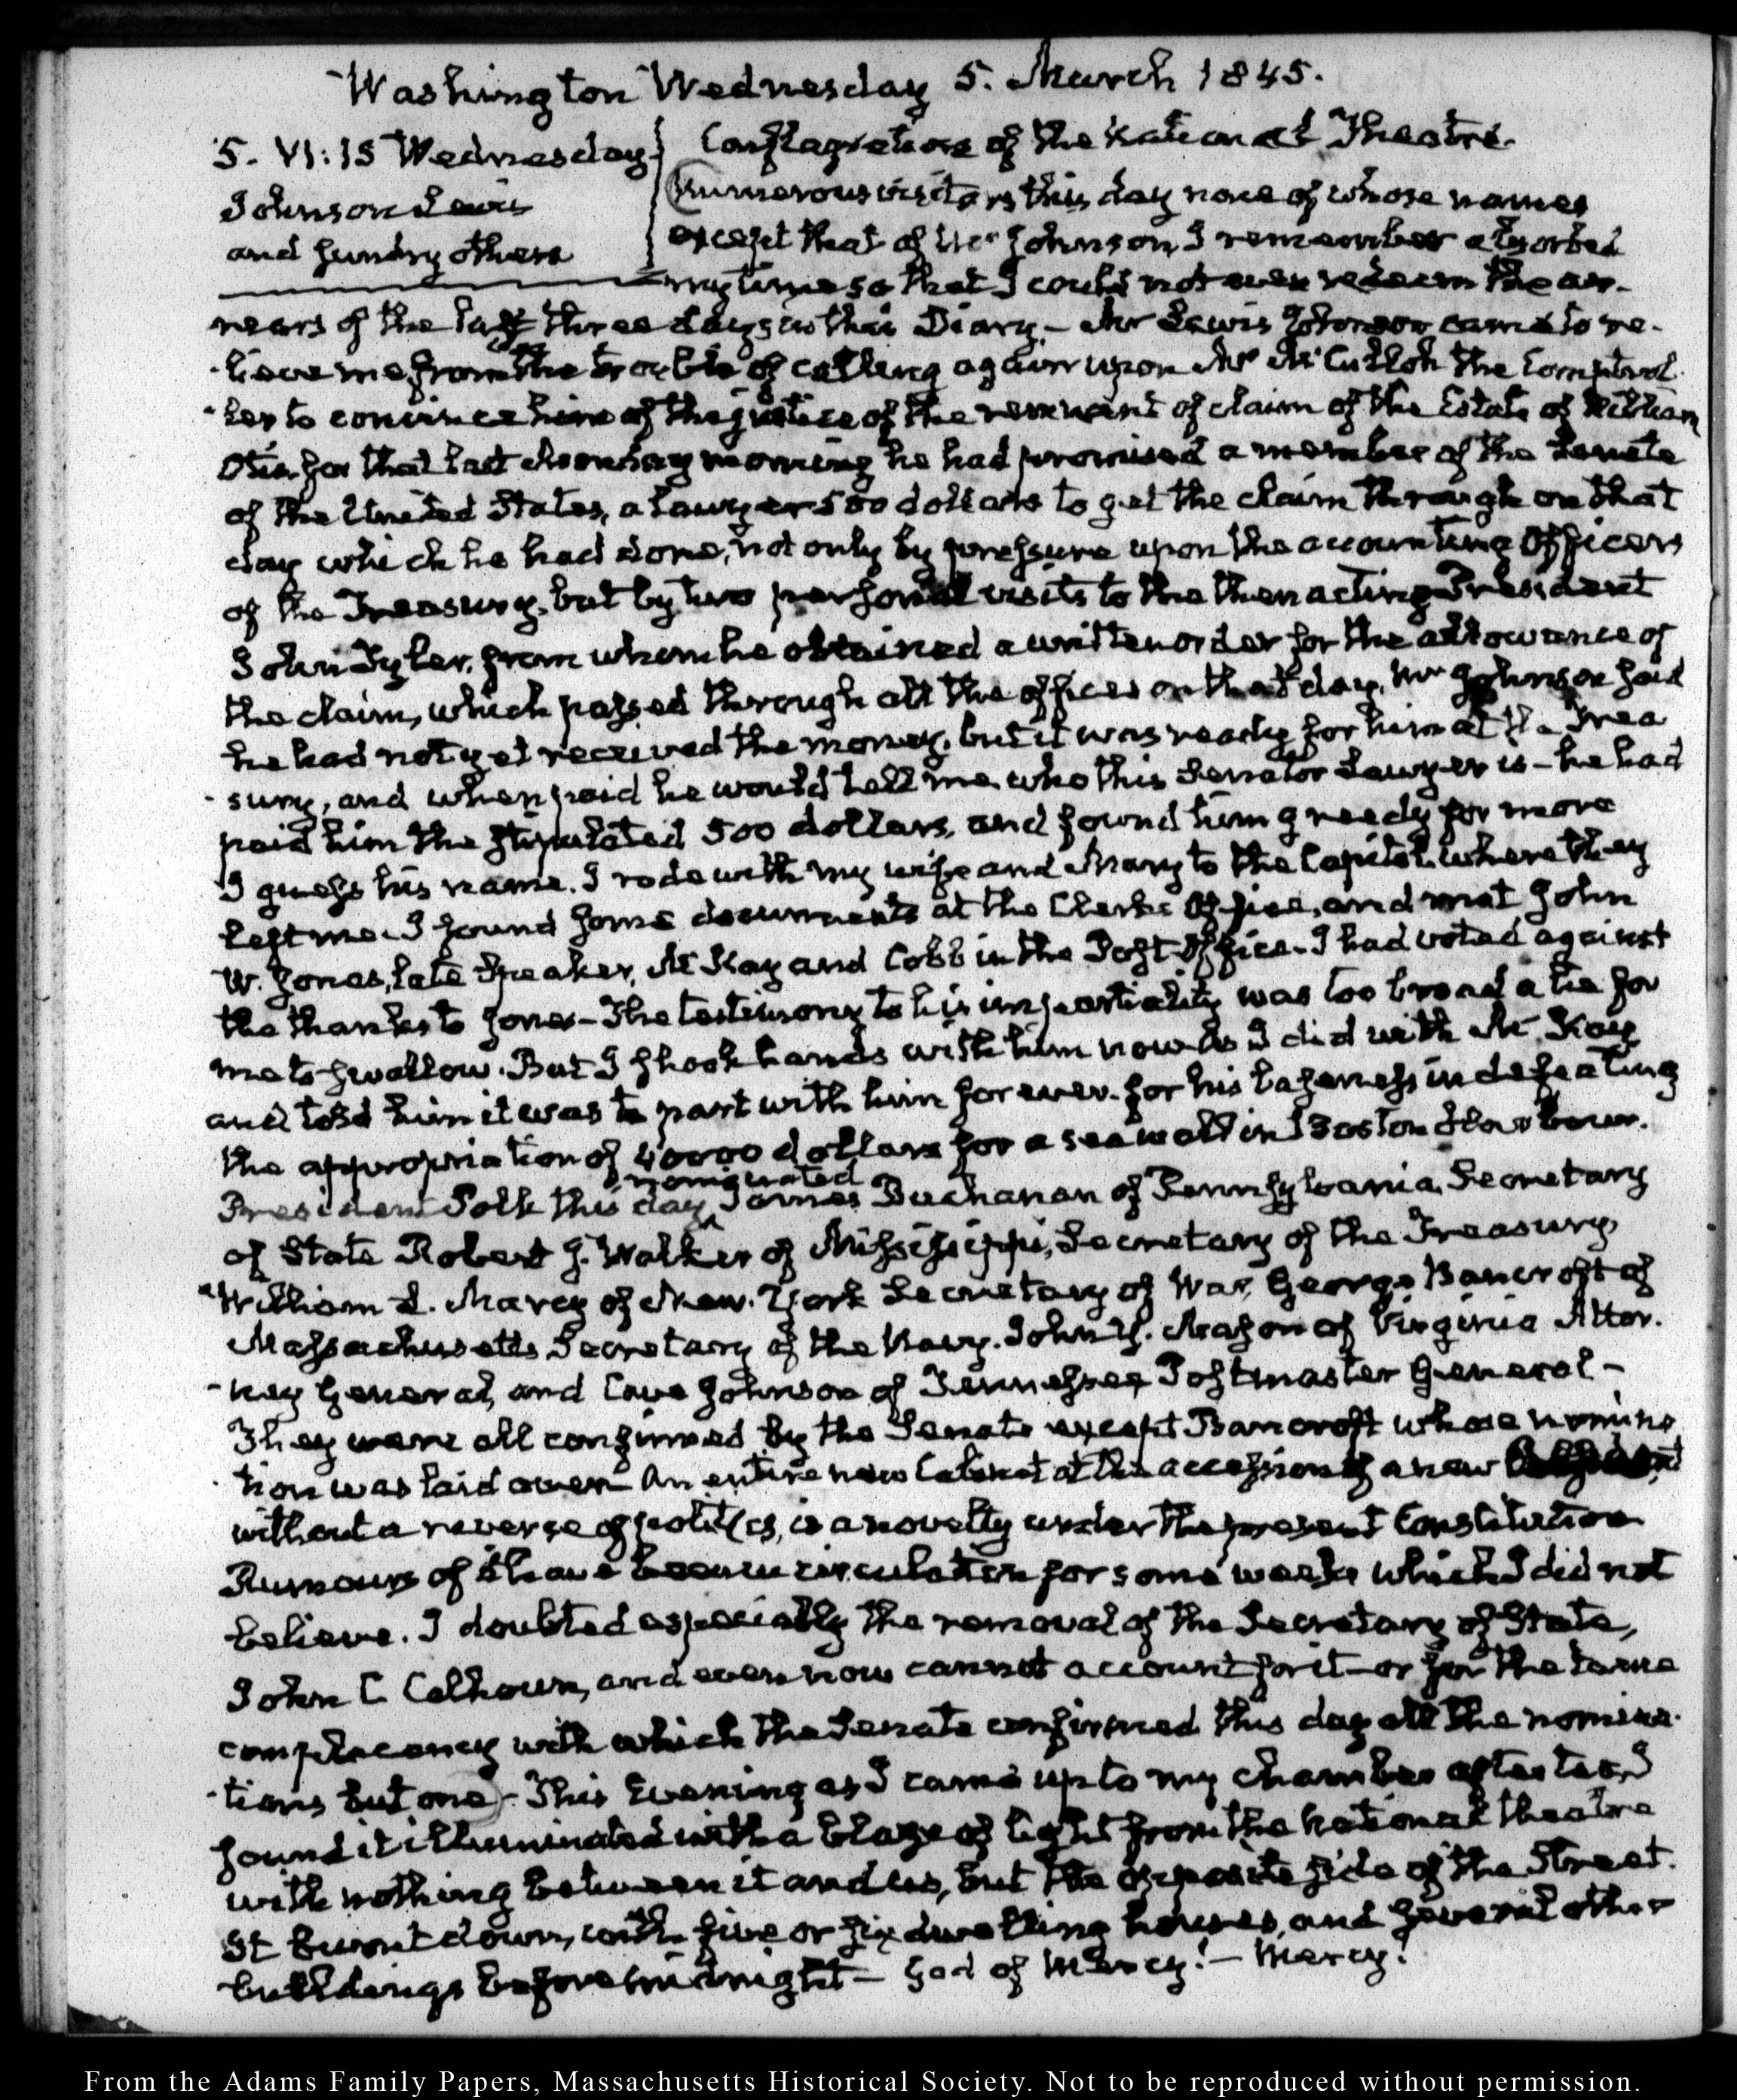 Washington Wednesday 5. March 1845.
5. VI:15 Wednesday
Johnson Lewis
and sundry others
Conflagration of the National Theatre.
Numerous visitors this day none of whose names
except that of Mr Johnson, I remember absorbed
my time so that I could not even redeem the ar-
rears of the last three days in this Diary. – Mr Lewis Johnson came to re-
lieve me from the trouble of calling again upon Mr McCulloh the Comptrol-
ler to convince him of the justice of the remnant of claim of the Estate of William
Otis for that last Monday morning he had promised a member of the Senate
of the United States, a lawyer 500 dollars to get the claim through on that
day which he had done, not only by pressure upon the accounting Officers
of the Treasury, but by two personal visits to the then acting President
John Tyler, from whom he obtained a written order for the allowance of
the claim, which passed through all the offices on that day. Mr Johnson said
he had not yet received the money, but it was ready for him at the Trea
sury, and when paid he would tell me who this Senator Lawyer is – he had
paid him the stipulated 500 dollars, and found him greedy for more
I guess his name. I rode with my wife and Mary to the Capitol where they
left me. I found some documents at the Clerk's Office, and met John
W. Jones, late Speaker, McKay and Cobb in the Post Office. I had voted against
the thanks to Jones – The testimony to his impartiality was too broad a lie for
me to swallow. But I shook hands with him now as I did with McKay
and told him it was to part with him forever. for his baseness in defeating
the appropriation of 40000 dollars for a sea wall in Boston Harbour.
nominated
President Polk this day James Buchanan of Pennsylvania, Secretary
of State Robert J. Walker of Mississippi, Secretary of the Treasury
William L. Marcy of New-York Secretary of War, George Bancroft of
Massachusetts Secretary of the Navy. John Y. Mason of Virginia Attor-
ney General, and Cave Johnson of Tennessee Postmaster General –
They were all confirmed by the Senate except Bancroft whose nomina
tion was laid over – An entire new Cabinet at the accession of a new
without a reverse of politics, is a novelty under the present Constitution
Rumours of it have been in circulation for some weeks which I did not
believe. I doubted especially the removal of the Secretary of State,
John C. Calhoun, and even now cannot account for it – or for the tame
complacency with which the Senate confirmed this day all the nomina-
tions but one – This Evening as I came up to my chamber after tea, I
found it illuminated with a blaze of light from the National theatre
with nothing between it and us, but the opposite side of the Street.
It burnt down, with five or six dwelling houses, and several other
buildings before midnight – God of Mercy! – Mercy!
From the Adams Family Papers, Massachusetts Historical Society. Not to be reproduced without permission.